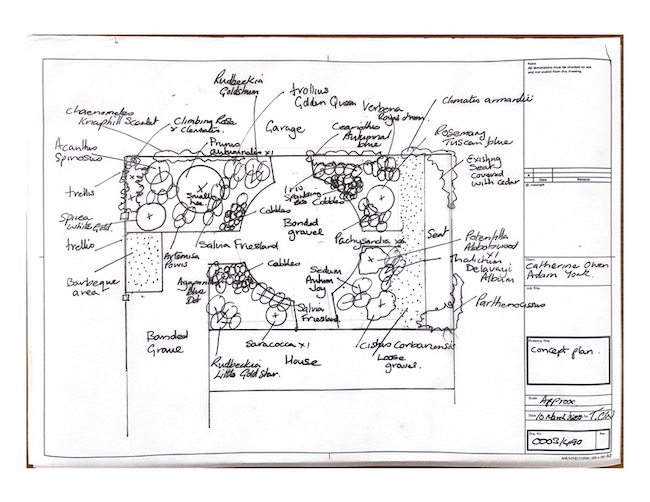 Rudbeckia
Goldstrum
trollius
Golden Queen
Verbena
Royal dream.
Clematis armandii
Chaenomeles
Knaphill Scarlet
Climbing Rose
x Clematis.
Garage
Ceanothus
Autumnal
blue
Rosemary
Tuscan blue
Acanthus
Spinosus
Prunus
autumnalis x1
Existing
Seat
covered
with cedar
trellis
Small
tree
Iris
Cobbles
Cobbles
Bonded
gravel
Spirea
trellis
Salvia Friesland
Pachysandra
Seat
Potentilla
Abbotswood
x1
Thalictrum
Delavayi
Album
Artemisia
Powis
Cobbles
Barbeque
area
Sedum
Autumn
Joy
Salvia
Friesland
Parthenocissus
Bonded
Gravel
Saracocca x1
Cistus Corbariensis
House
Loose
gravel.
Rudbeckia
Little Gold Star.
Notes
All dimensions must be checked on site
and not scaled from this drawing
Date
Revision
© copyright
Client
Catherine Owen
Adam York.
Job Title
Drawing Title
Concept plan.
Scale
Approx
Date
10 March
T.CW
Drg. No.
0003/490
Rev.
A3